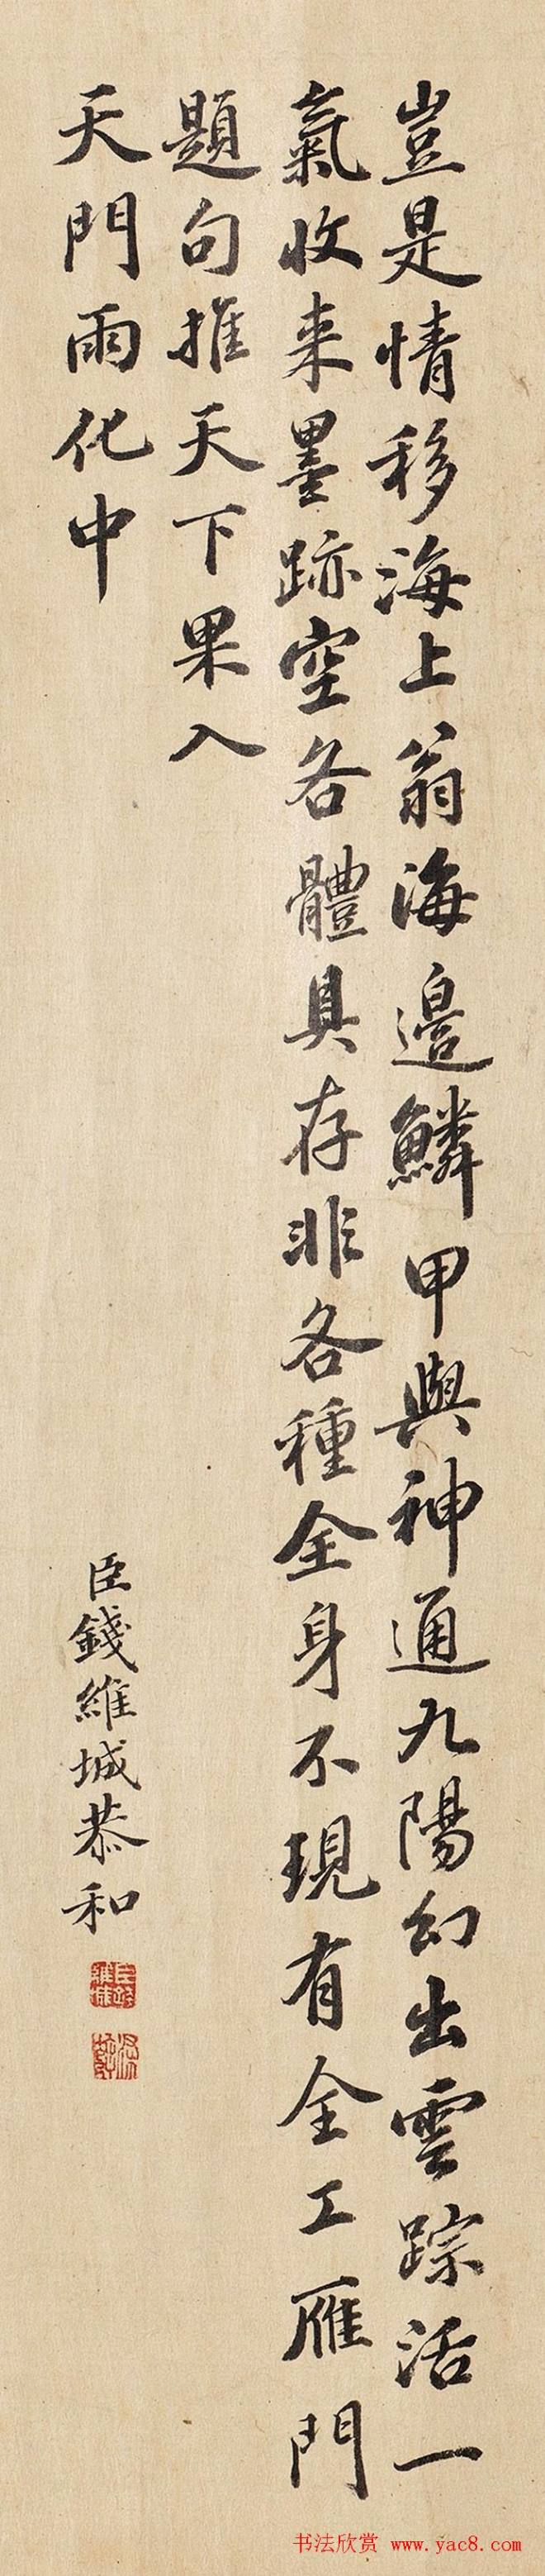 豈是情移海上翁海邉鱗甲與神通九陽幻出雲踪活一
氣收来墨跡空各體具存非各種全身不現有全工雁門
題句推天下果入
天門雨化中
臣錢維城恭和
书法欣赏 www.yac8.com